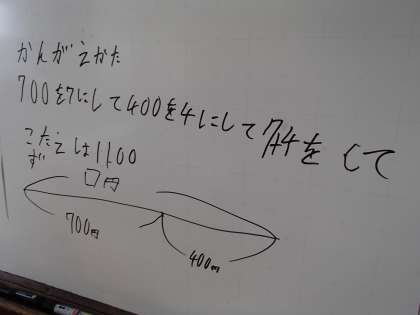 かんがえかた
700を7にして400を4にして7+4をして
こたえは1100
ず
□円
700円
400円